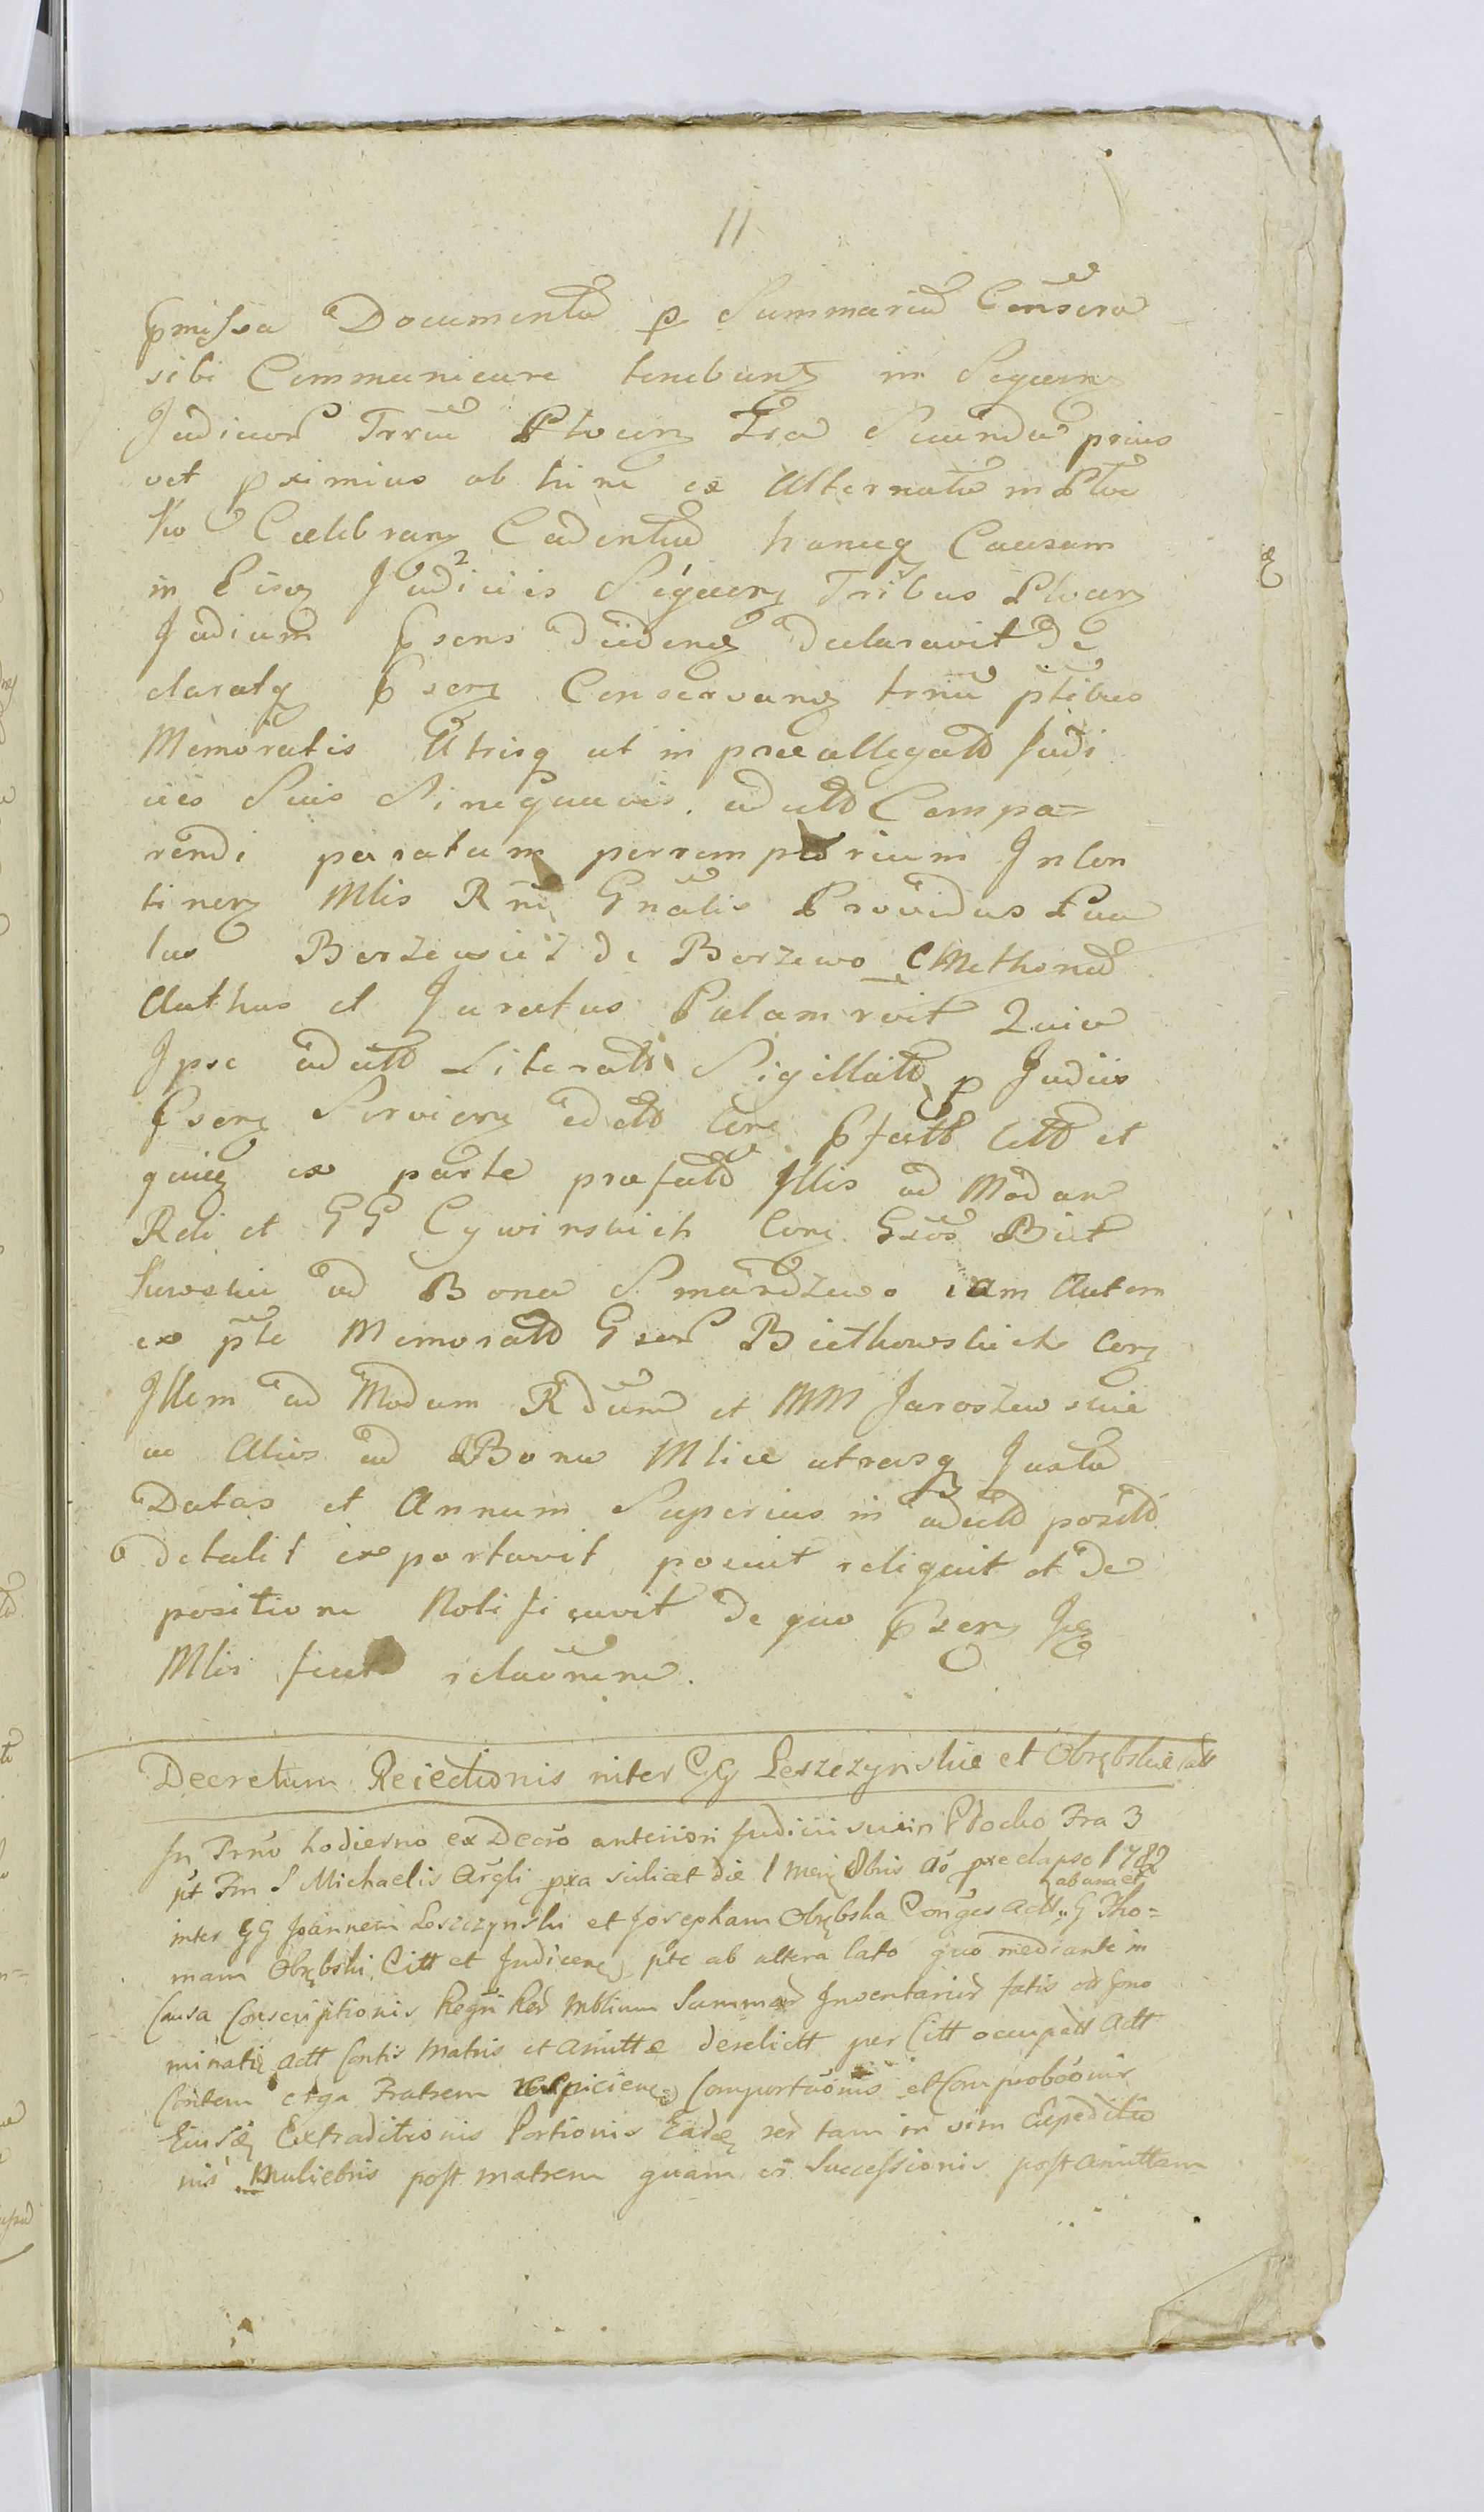 11
pmissa Documenta p Summariu Censera
sibi Communicare tenebunt in Sequen
Judicior Trriu Plocen Fra Secunda prius
vel pximius ab hinc ex Alternata in Ploc
ko Caelebran Cadentia hancq Causam
in Eisq Judiciis Sequen Tribus Plocen
Judicium psens decidend declaravit de
claratq psen Conservand trnu ptibus
Memoratis Utrisq ut in praeallegatt Judi
ciis Suis Sinequavis. adctt Compa=
rendi paratum perremptorium In Con
tinen Mlis Rni Gnalis Providus Pau
lus Borzewo Methonea
Authus et Juratus Palam rvit Quia
Ipse adctt Literatt Sigillatt p Judiis
psen Servien adctt Con pfatt Citt et
quidem ex parte praefatt Illis ad Modum
Rdi et GG Cywinskich Con Gsos Biet
kowskie ad Bona Smardzewo iam Autem
ex pte Memoratt Gsor Biethowskich Con
Illem ad Modum Rdum et MM Jaroszewskie
ac Alios ad Bona Mlice utrasq Juxta
Datas et Annum Superius in adctt positt
detulit exportavit posuit reliquit et De
positione Notificavit de quo psen
Mlis fecit relaonem.
Decretum Reiectionis inter GG Leszczynskie et Obrębskie latt
In Trno hodierno ex Decro anteriori Judicii sui in Plocko Fra 3
pt Fm S Michaelis Argli pxa scilicet die 1 Mens 8bris Ao praeelapso 1782
ab una et
inter GG Joannem Leszczynski et Josepham Obrębska Conges Actt G Tho=
mam Obrębski Citt et Judicen pte ab altera lato quo mediante in
Causa Conscriptionis Regri Rer Mblium Summar Inventarior fatis
minatis Actt Contis Matris et Amittae derelictt per Citt occupatt Actt
Contem erga Fratrem respicien Comportaonis et Comprobaonis
Eiusd Extraditionis Portionis Eard rer tam in vim Expeditio
nis Muliebris post matrem quam et Successionis post Amittam